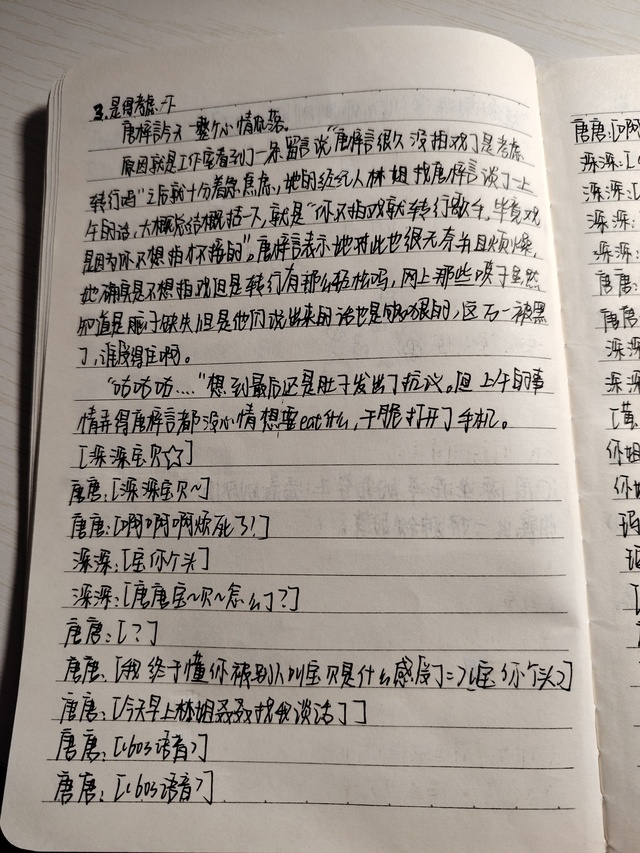 3.是得考虑一下
唐梓言今天一整个心情低落。
原因就是工作室看到了一条留言说"唐梓言很久没拍戏了是考虑
转行吗"之后就十分着急焦虑,她的经纪人林姐找唐梓言谈了一上
午的话,大概总结概括一下,就是"你不拍戏就转行歌手,毕竟戏
是因为你不想拍才不接的"。唐梓言表示她对此也很无奈并且烦燥,
她确实是不想拍戏但是转行有那么轻松吗,网上那些喷子虽然
知道是脑子缺失但是他们说出来的话也是够狠的,这万一被黑
了,谁受得住啊。
"咕咕咕...."想到最后还是肚子发出了抗议。但上午的事
情弄得唐梓言都没心情想要eat什么,干脆打开了手机。
[深深宝贝☆]
唐唐:[深深宝贝~]
唐唐:[啊啊啊烦死了!]
深深:[宝你个头]
深深:[唐唐宝~贝~怎么了?]
唐唐:[?]
唐唐:[我终于懂你被别人叫宝贝是什么感受了=﹥宝你个头]
唐唐:[今天早上林姐叒叕找我谈话了]
唐唐:[《60s语音》]
唐唐:[《60s语音》]
唐唐:[啊
深深:[
深深:[
深深:
深深:
唐唐:
唐唐:
深深
深深
[黄
你姐
你姐
玛